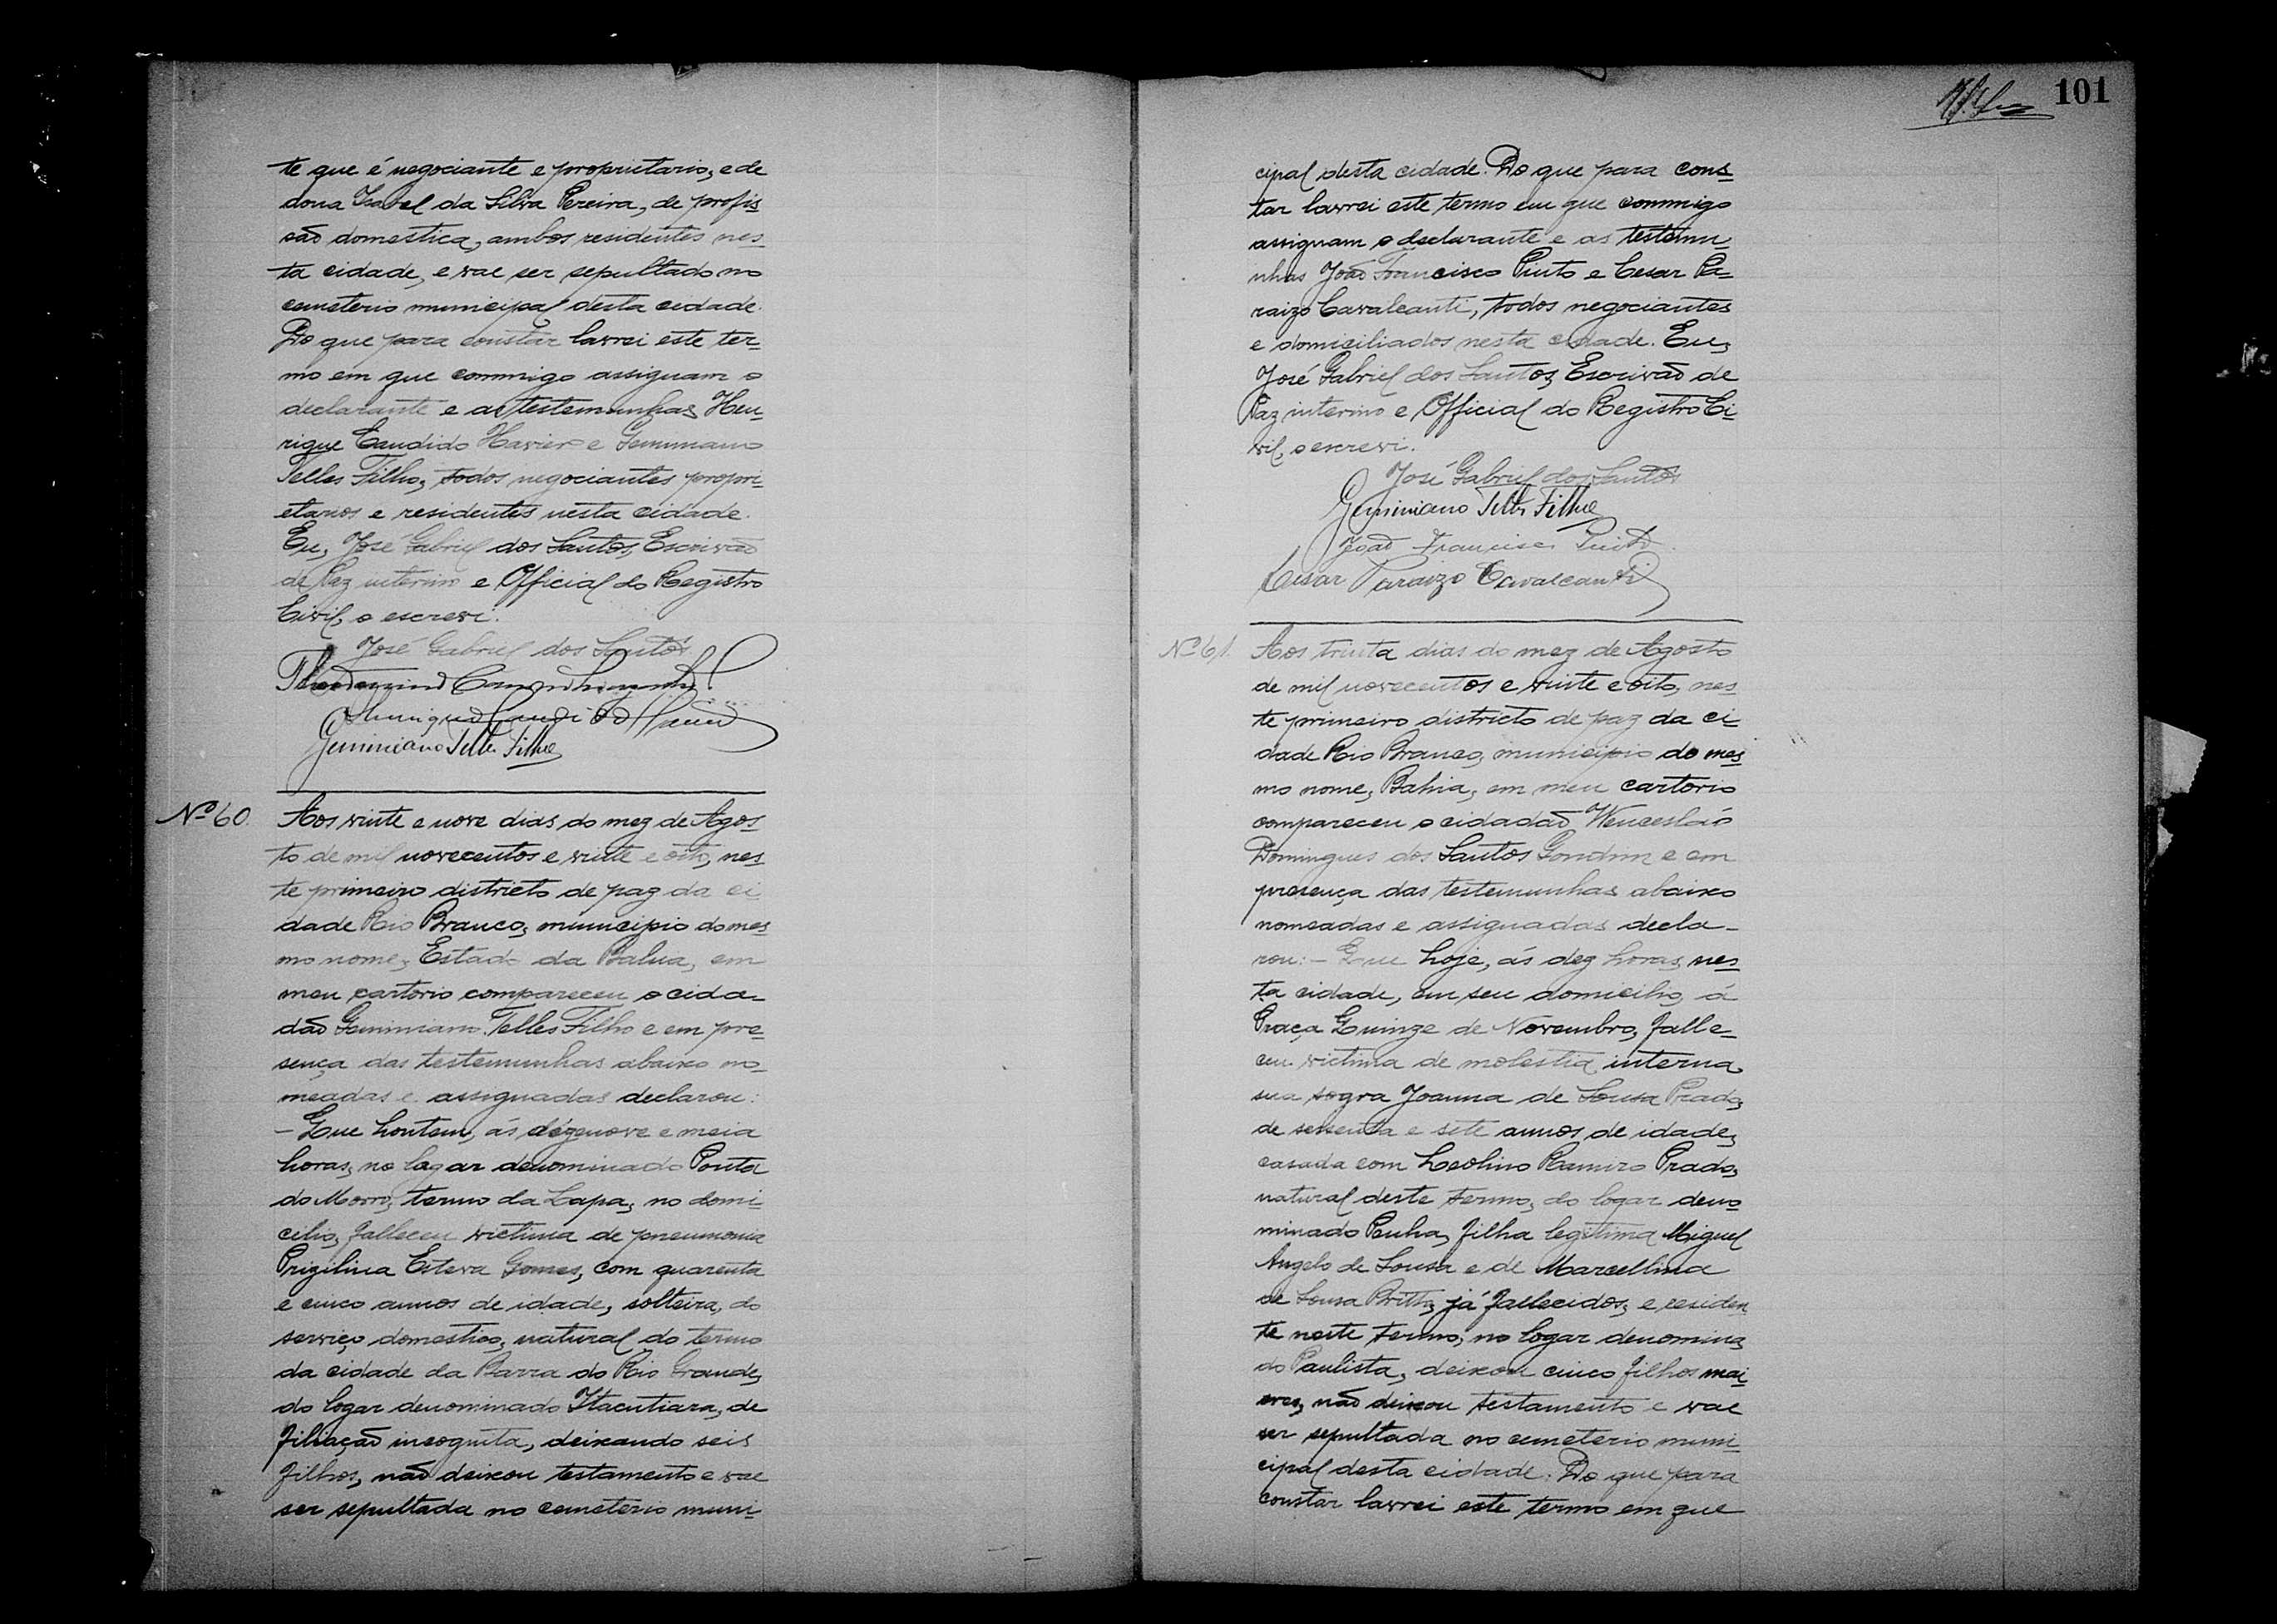 te que é negociante e proprietario, e de
dona Isabel da Silva Pereira, de profis
são domestica, ambos residentes nes
ta cidade, e vae ser sepultado no
cemeterio municipal desta cidade.
Do que para constar lavrei este ter-
mo em que commigo assignam o
declarante e as testemunhas Hen-
rique Candido Xavier e Geminiano
Telles Filho, todos negociantes propri-
etarios e residentes nesta cidade.
Eu, José Gabriel dos Santos, Escrivão
de Paz interino e Official do Registro
Civil, o escrevi.
José Gabriel dos Santos
Henrique Candido
Geminiano Telles Filho
Nº 60. Aos vinte e nove dias do mez de Agos
to de mil novecentos e vinte e oito, nes
te primeiro districto de paz da ci
dade Rio Branco, municipio do mes
mo nome, Estado da Bahia, em
meu cartorio compareceu o cida-
dão Geminiano Telles Filho e em pre-
sença das testemunhas abaixo no-
meadas e assignadas declarou:
- Que hontem, ás dezenove e meia
horas, no lagar denominado Ponta
do Morro, termo da Lapa, no domi-
cilio, falleceu victima de pneumonia
Prizilina Esteva Gomes, com quarenta
e cinco annos de idade, solteira, do
serviço domestico, natural do termo
da cidade da Barra do Rio Grande,
do logar denominado Itacutiara, de
filiação incognita, deixando seis
filhos, não deixou testamento e vae
ser sepultada no cemeterio muni-
101
cipal desta cidade. Do que para cons
tar lavrei este termo em que commigo
assignam o declarante e as testemu
nhas João Francisco Pinto e Cesar Pa-
raizo Cavalcanti, todos negociantes
e domiciliados nesta cidade. Eu,
José Gabriel dos Santos, Escrivão de
Paz interino e Official do Registro Ci-
vil, o escrevi.
José Gabriel dos Santos
Geminiano Telles Filho
João Francisco Pinto
Cesar Paraizo Cavalcanti
Nº 61. Aos trinta dias do mez de Agosto
de mil novecentos e vinte e oito, nes
te primeiro districto de paz da ci-
dade Rio Branco, municipio do mes
mo nome, Bahia, em meu cartorio
compareceu o cidadão Wencesláo
Domingues dos Santos Gondim e em
presença das testemunhas abaixo
nomeadas e assignadas decla-
rou: - Que hoje, ás dez horas, nes
ta cidade, em seu domicilio, á
Praça Quinze de Novembro, falle-
ceu victima de molestia interna
sua sogra Joanna de Sousa Prado,
de sessenta e sete annos de idade,
casada com Leolino Ramiro Prado,
natural deste termo, do logar deno
minado Penha, filha legitima Miguel
Angelo de Sousa e de Marcellina
de Sousa Britto, já fallecidos, e residen
te neste termo, no logar denomina
do Paulista, deixou cinco filhos mai
ores, não deixou testamento e vae
ser sepultada no cemeterio muni-
cipal desta cidade. Do que para
constar lavrei este termo em que